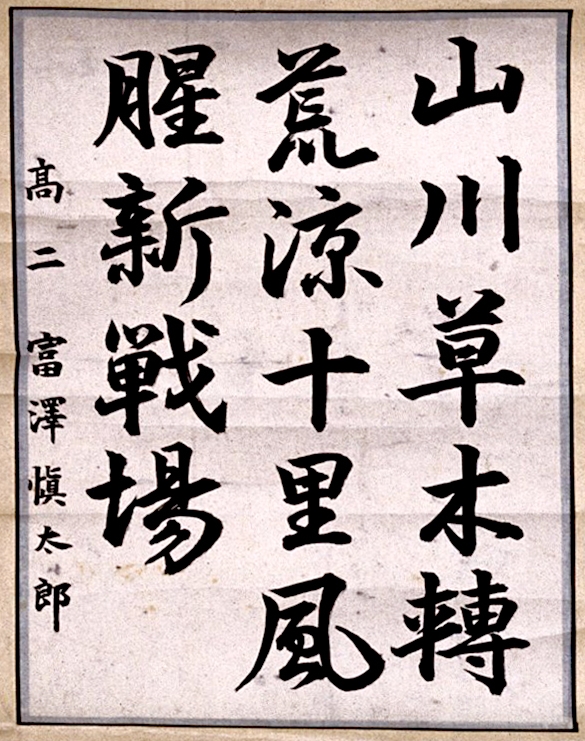 山川草木轉
荒涼十里風
腥新戰場
高二 富澤愼太郎